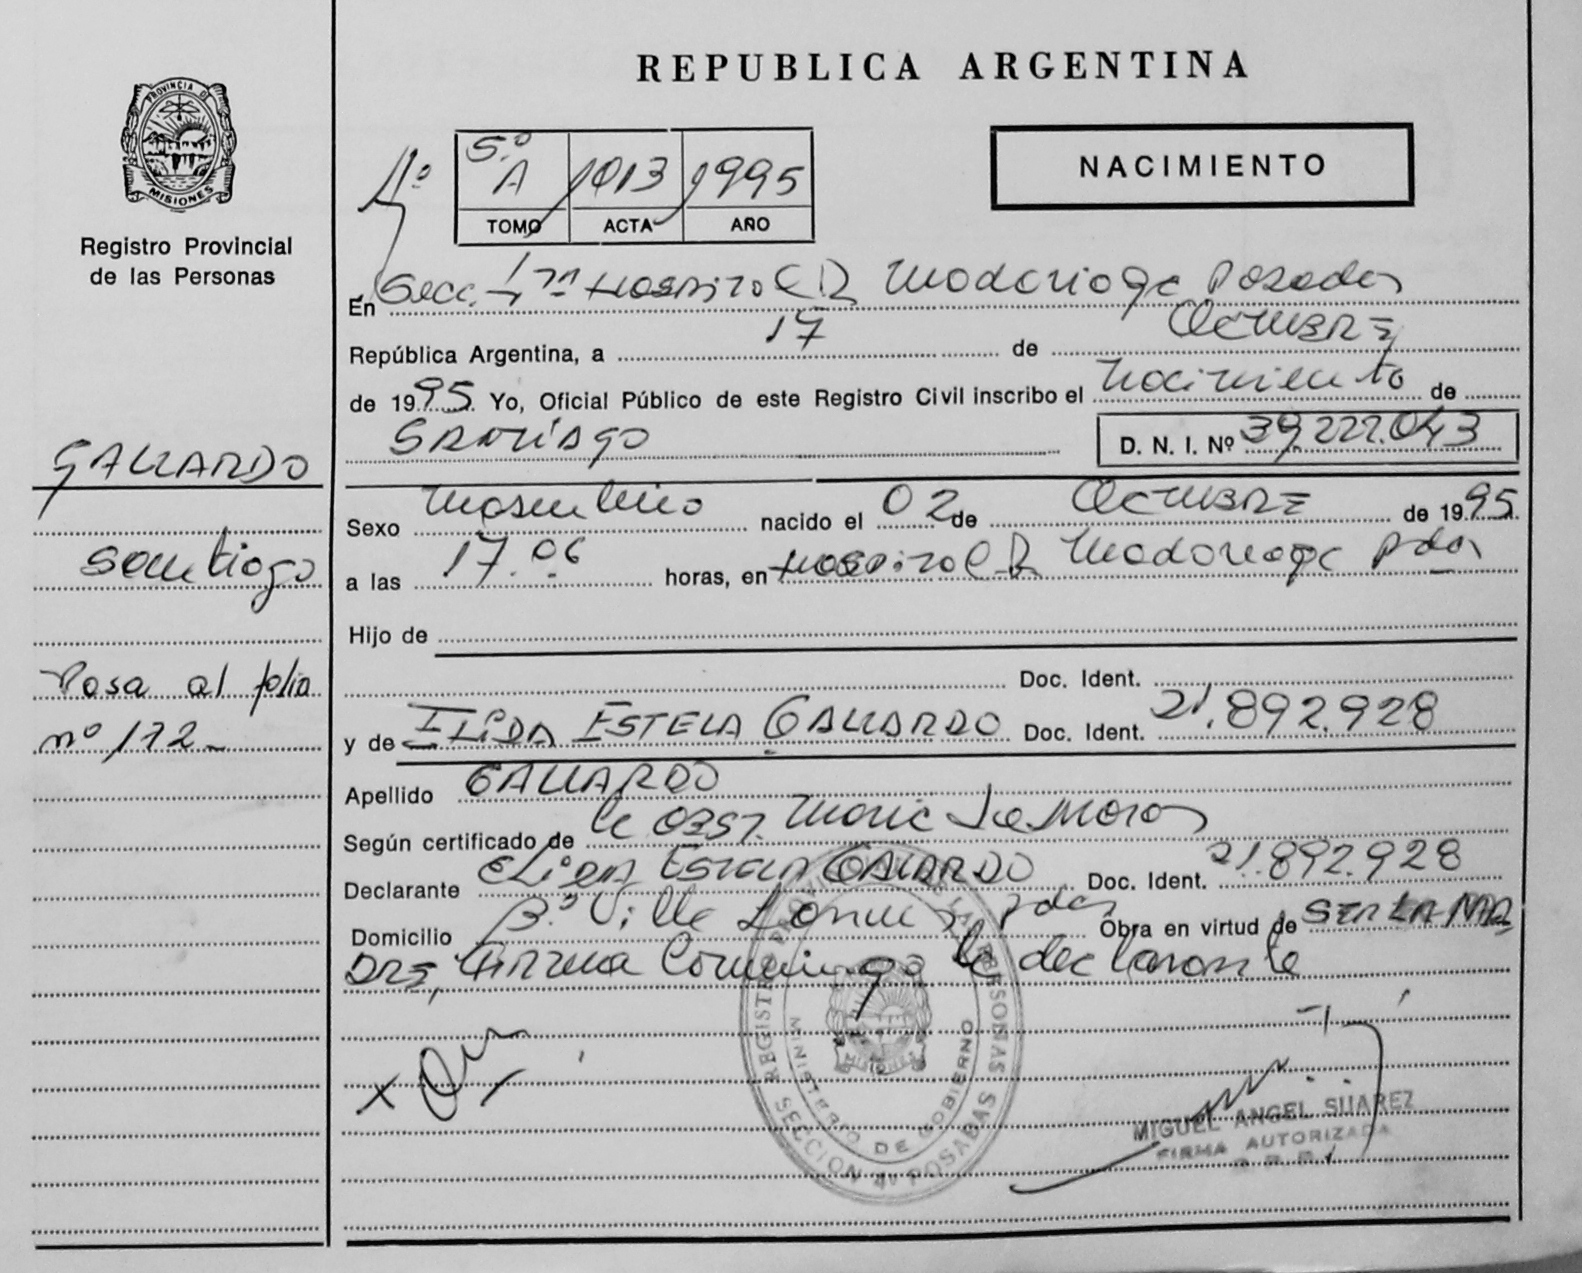 PROVINCIA D
MISIONES
Registro Provincial
de las Personas
GALLARDO
Santiago
Pasa al folio
nº 172
REPUBLICA ARGENTINA
5.º
A 1013 1995
TOMO ACTA AÑO
NACIMIENTO
En Secc. Hospital R Madariaga Posadas
República Argentina, a 17 de Octubre
de 1995 Yo, Oficial Público de este Registro Civil inscribo el nacimiento de
Santiago D. N. I. Nº 39.222.043
Sexo masculino nacido el 02 de Octubre de 1995
a las 17.06 horas, en Hospital R Madariaga Pdas
Hijo de
Doc. Ident.
y de ELIDA ESTELA GALLARDO Doc. Ident. 21.892.928
Apellido GALLARDO
Según certificado de la Obst. Maria
Declarante Elida Estela GALLARDO Doc. Ident. 21.892.928
Domicilio Bº Villa Lanus Pdas Obra en virtud de SER LA MA
DRE, Firma Conmigo la declarante
REGISTRO PROVINCIAL DE LAS PERSONAS
MINISTERIO DE GOBIERNO
SECCION POSADAS
MIGUEL ANGEL SUAREZ
FIRMA AUTORIZADA